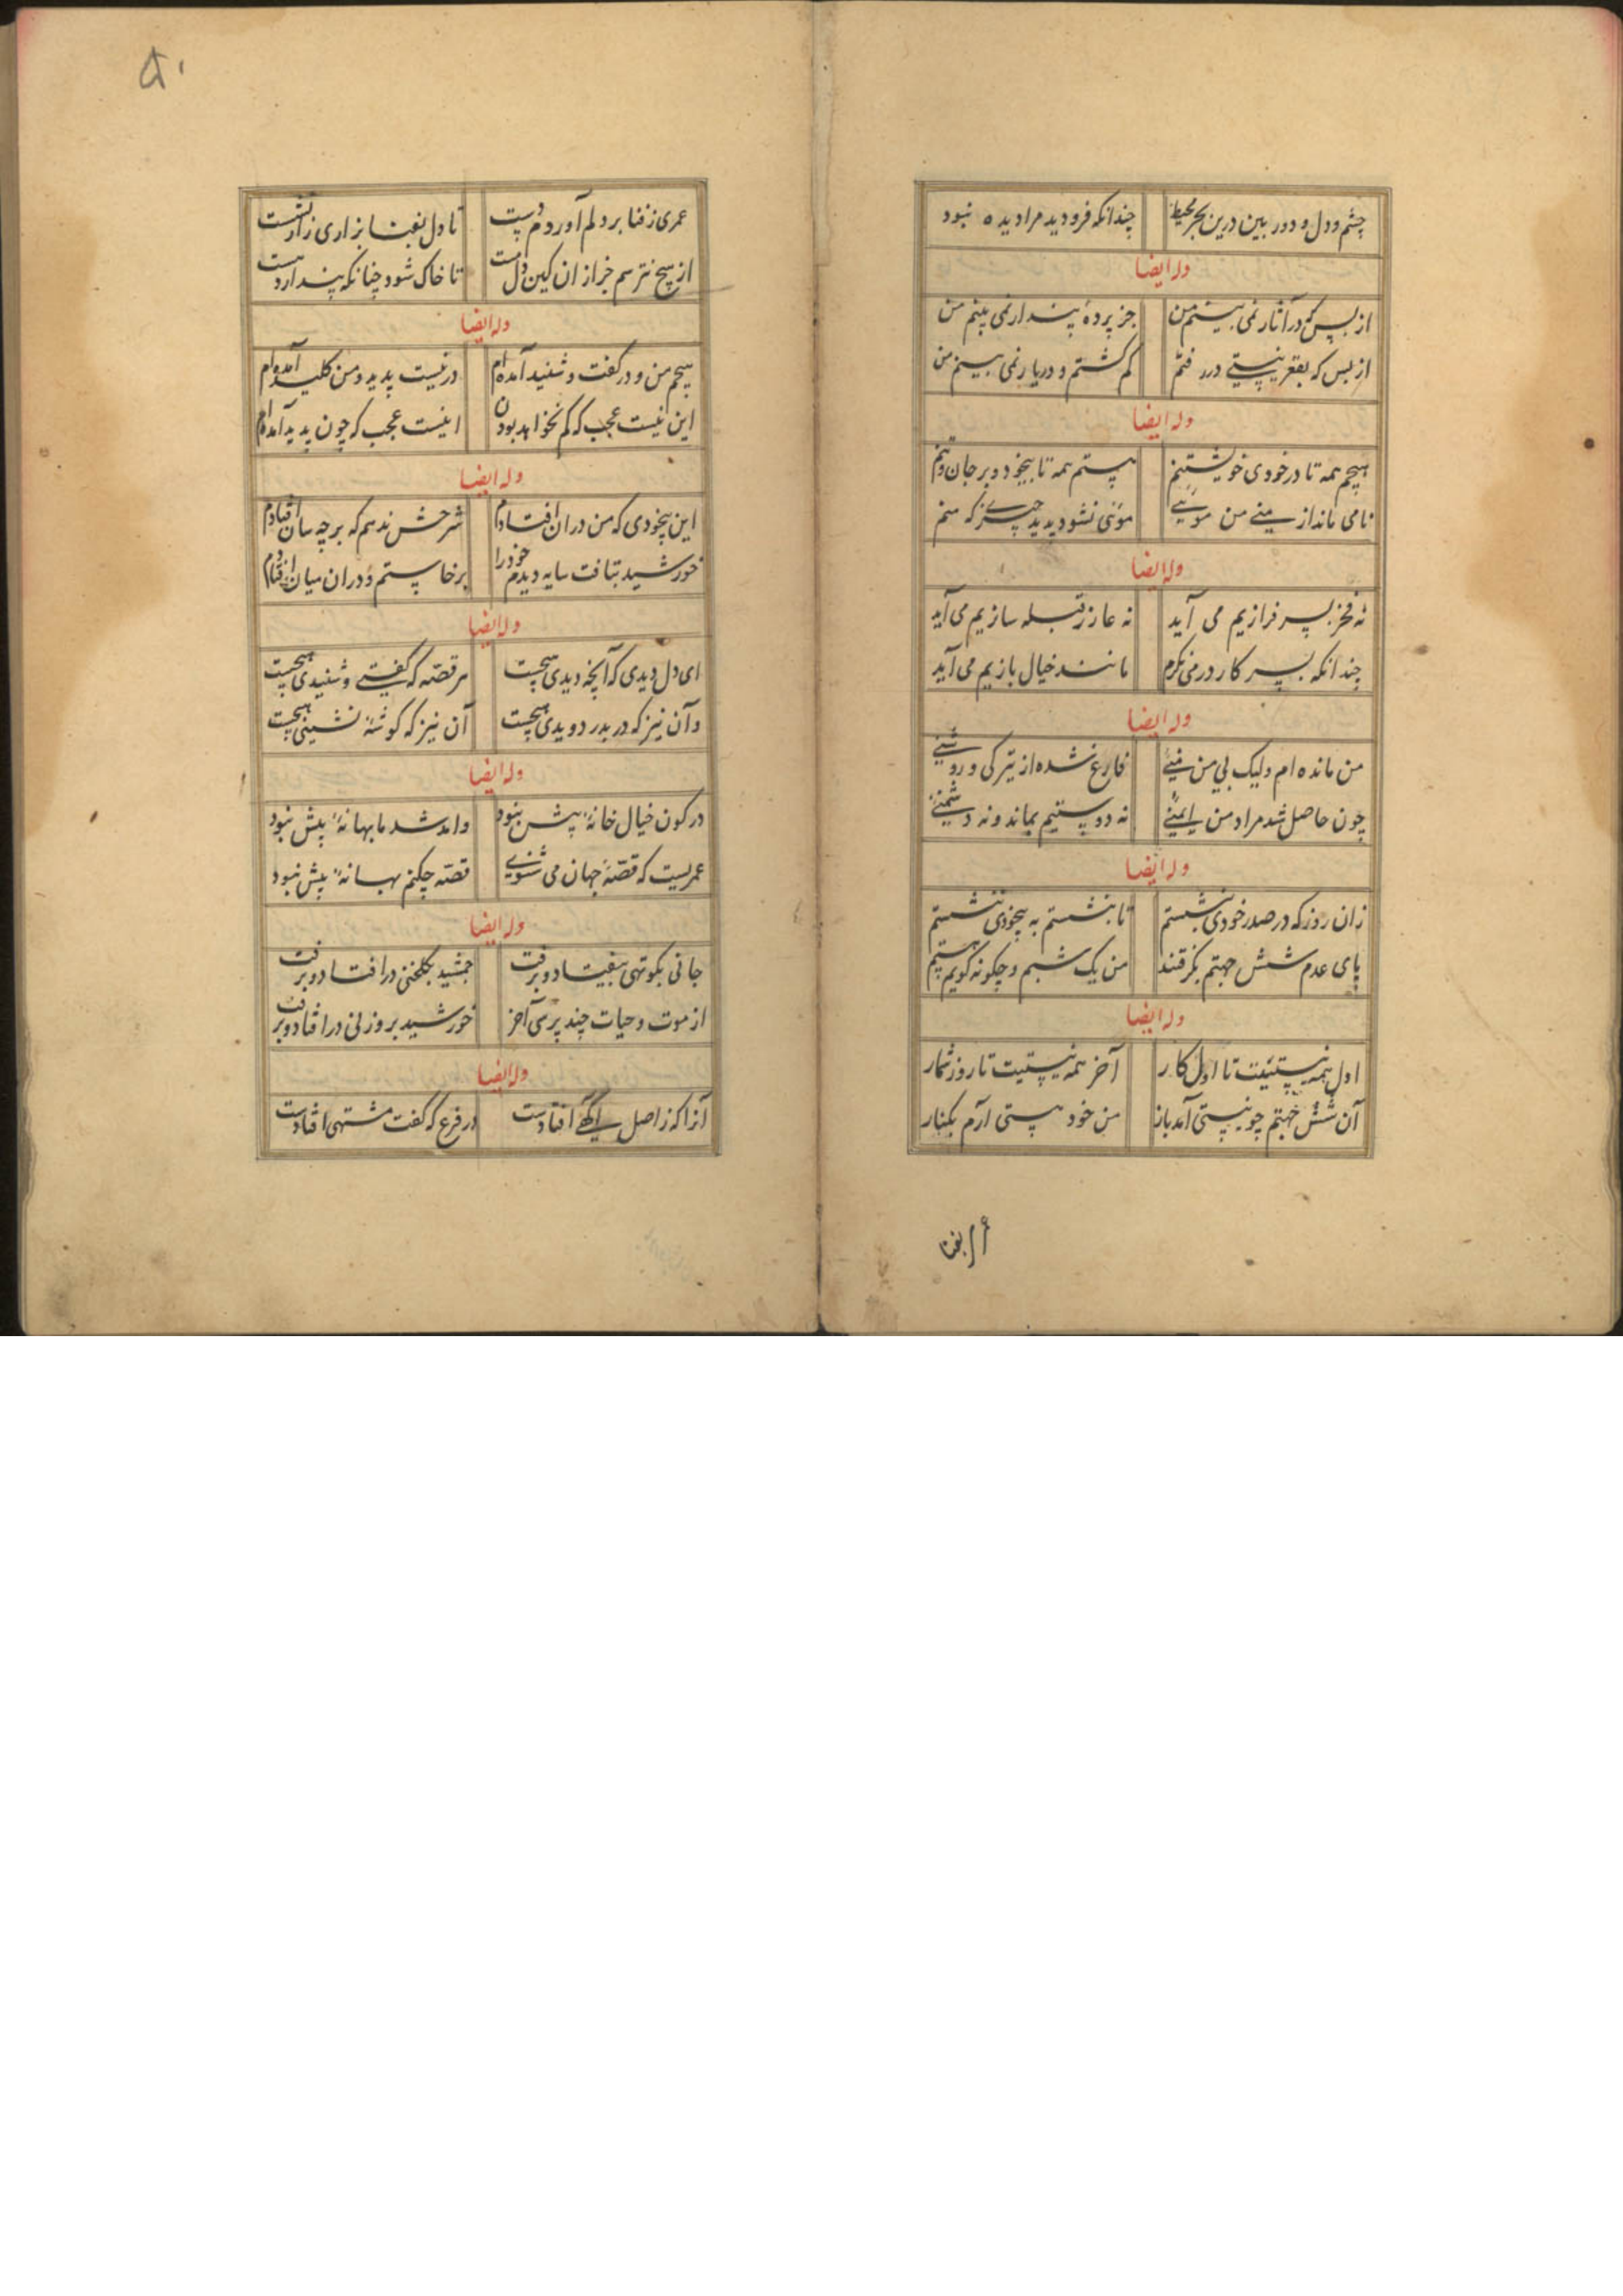 چشم و دل و دور بین درین بحر محیط چندانکه فرو دید مرا دیده نبود
وله ایضا
از بس که در آثار نمی بینم من جز پردهٔ پندار نمی بینم من
از بس که بقعر نیستی در رفتم گم گشتم و دریا ر نمی بینم من
وله ایضا
هیچم همه تا در خودی خویشتنم هستم همه تا بیخود و بر جان و تنم
نامی ماند از منی من مویی مویی نشود پدید چیزی که منم
وله ایضا
نه فخر بسر فرازیم می آید نه عار ز قبله سازیم می آید
چندانکه بسر کار در می نکرم مانند خیال بازیم می آید
وله ایضا
من مانده ام ولیک بی من منیی فارغ شده از تیرکی و روشنیی
چون حاصل شد مراد من ایمنیی نه دوستیم بماند و نه دشمنیی
وله ایضا
زان روز که در صدر خودی بنشستم تا بنشستم به بیخودی ننشستم
پای عدم شش جهتم بگرفتند من یک شبم و چگونه گویم هستم
وله ایضا
اول همه نیستیست تا اول کار آخر همه نیستیست تا روز شمار
آن شش جهتم چو نیستی آمد باز من خود هستی آرم بکنار
عمری ز فنا بر دلم آوردم دست تا دل بفنا بزاری زار نشست
از هیچ نترسم جز ازان کین دل مست تا خاک شود چنانکه پندارد هست
وله ایضا
هیچم من و در گفت و شنید آمده ام در نیست پدید و من کلید آمده ام
این نیست عجب که گم نخواهد بودن اینست عجب که چون پدید آمده ام
وله ایضا
این بیخودی که من دران افتادم شرحش ندهم که بر چه سان افتادم
خورشید بتافت سایه دیدم خود را برخاستم و در ان میان افتادم
وله ایضا
ای دل دیدی که آنچه دیدی هیچست هر قصه که گفتی و شنیدی هیچست
وآن نیز که در بدر دویدی هیچست آن نیز که گوشهٔ نشینی هیچست
وله ایضا
در کون خیال خانهٔ بیش نبود وامد شد ما بهانهٔ بیش نبود
عمریست که قصهٔ جهان می شنوی قصه چکنم بهانهٔ بیش نبود
وله ایضا
جانی بکوتهی بیفتاد و برفت جمشید بگلخنی در افتاد و برفت
از موت و حیات چند پرسی آخر خورشید بروزنی در افتاد و برفت
وله ایضا
آنرا که ز اصل آگهی افتادست در فرع که گفت مشتهی افتادست